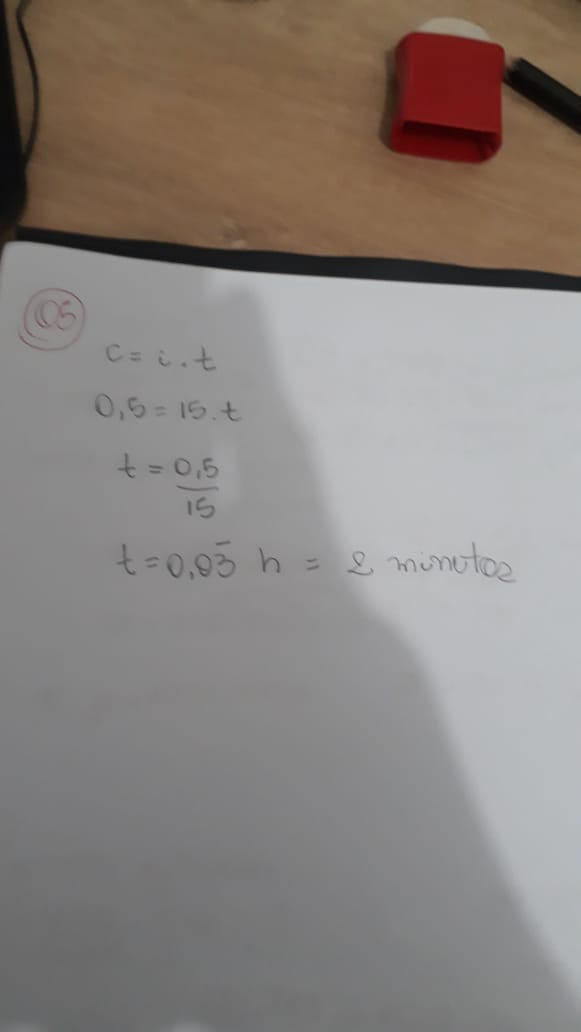 05
C = i . t
0,5 = 15 . t
t = 0,5
15
t = 0,03̅ h = 2 minutos